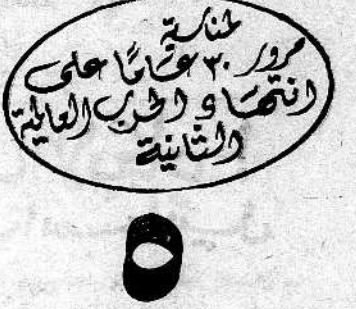 لمناسبة
مرور ٣٠ عامًا على
انتهاء الحرب العالمية
الثانية